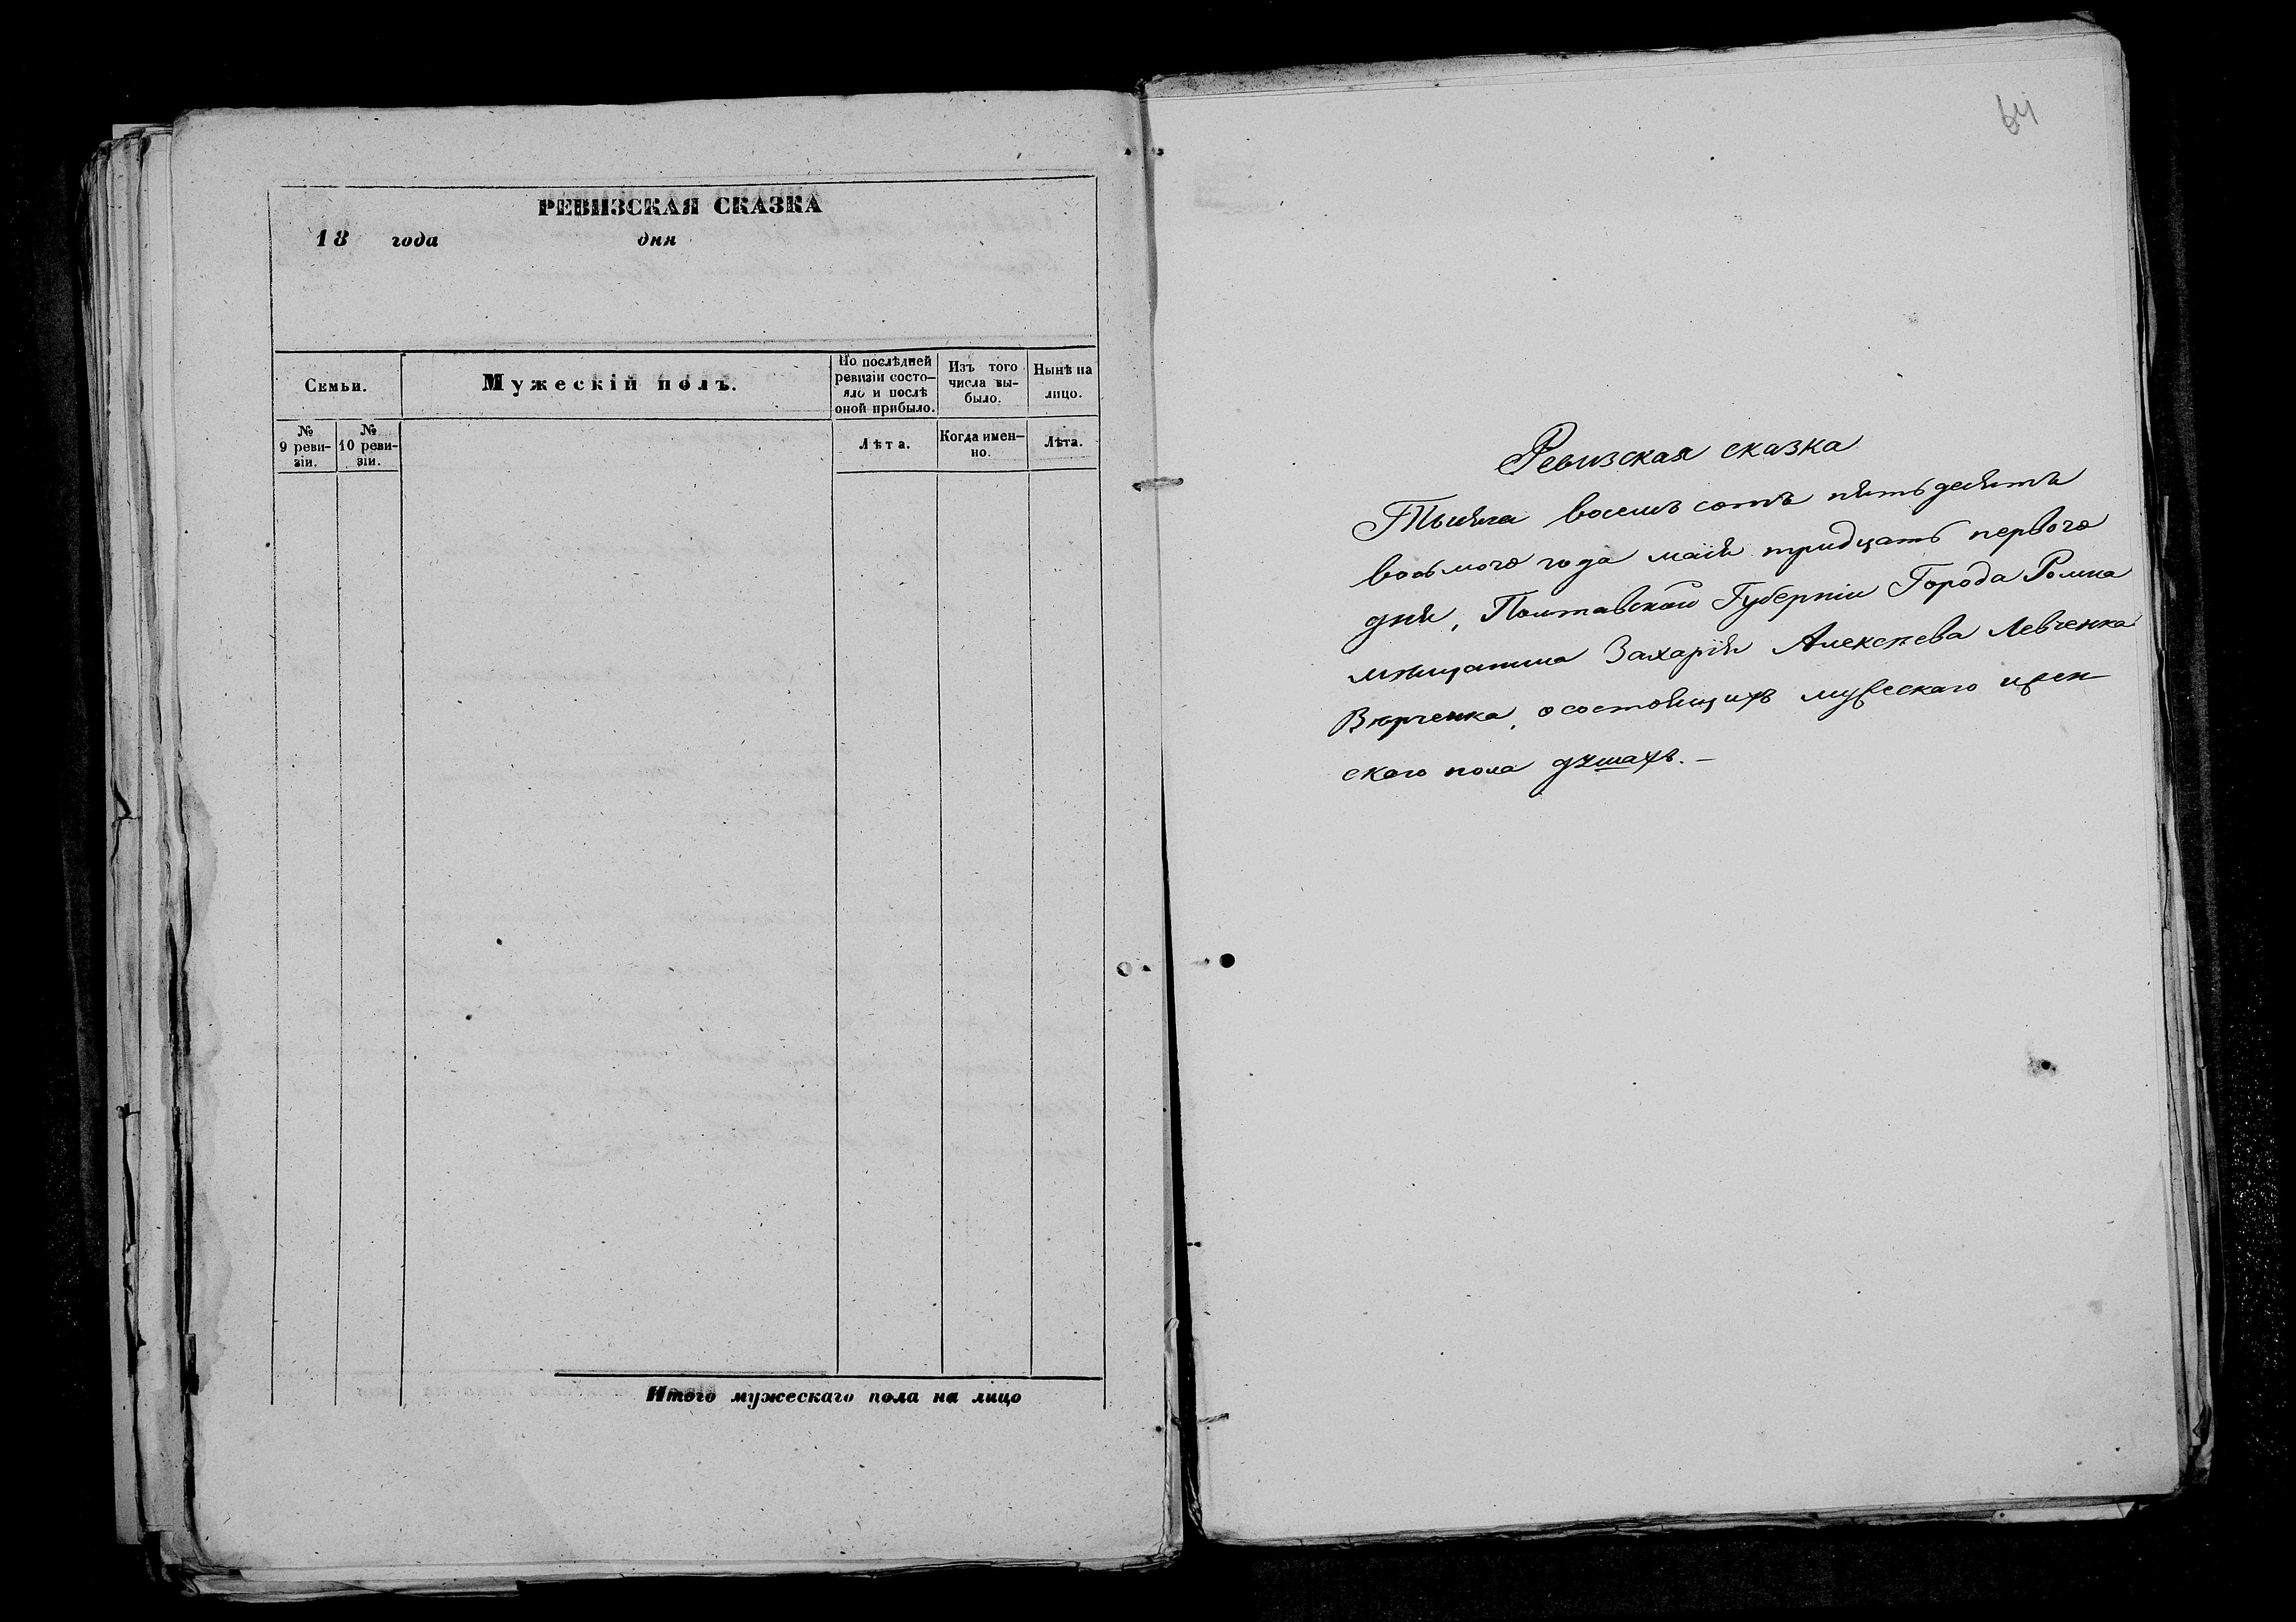 РЕВИЗСКАЯ СКАЗКА
18 года дня
Семьи.
Мужескій полъ.
По послѣдней
ревизіи состо-
яло и послѣ
оной прибыло.
Изъ того
числа вы-
было.
Нынѣ на
лицо.
№
9 реви-
зіи.
№
10 реви-
зіи.
Лѣта.
Когда имен-
но.
Лѣта.
Итого мужескаго пола на лицо
64
Ревизская сказка
Тысяча восемь сотъ пятьдесятъ
восьмого года маія тридцать первого
дня, Полтавской Губерніи Города Ромна
мѣщанина Захарія Алексѣева Левченка
Вюрченка, о состоящихъ мужескаго и жен-
ского пола душахъ. —